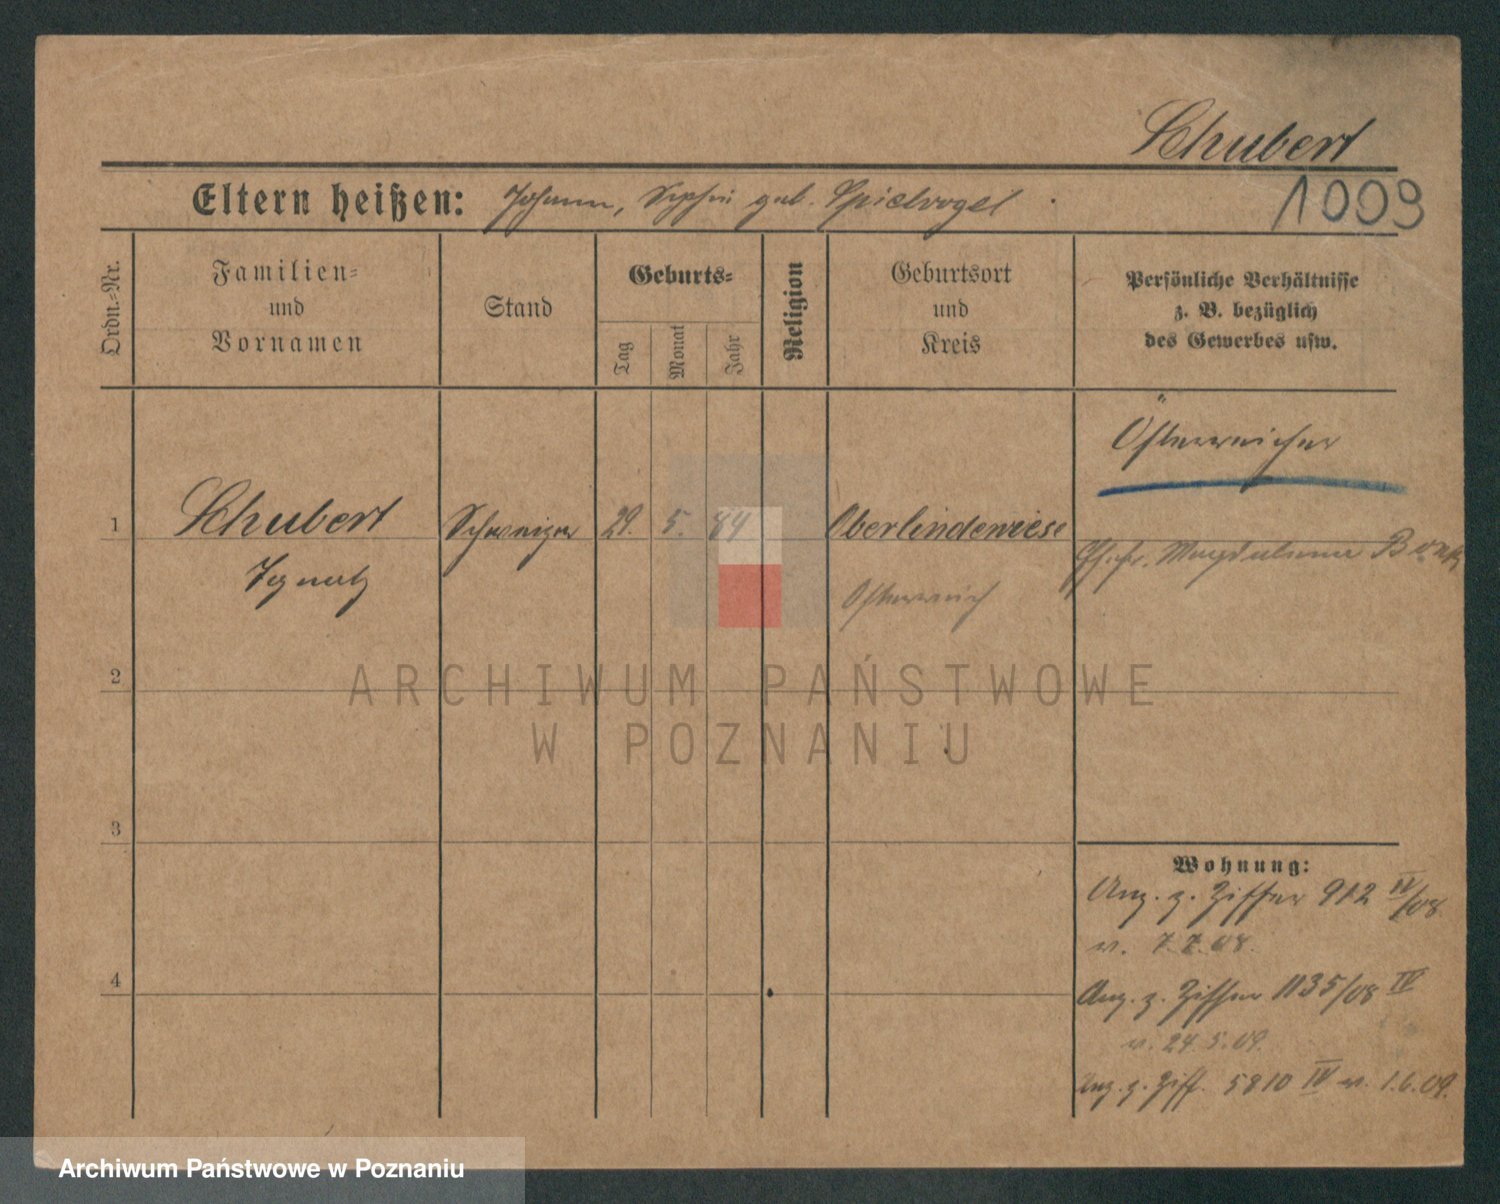 Schubert
1009
Eltern heißen: Johann, Sophie geb. Spielvogel
Ordn.=Nr.
Familien=
und
Vornamen
Stand
Geburts=
Tag
Monat
Jahr
Religion
Geburtsort
und
Kreis
Persönliche Verhältnisse
z. B. bezüglich
des Gewerbes usw.
Österreicher
1
Schubert
Ignatz
Schweizer
29.
5.
84
Oberlindewiese
Österreich
Magdalena
2
3
4
Wohnung:
Anz. z. Ziffer 912 IV/08
v. 7.7.08.
Anz. z. Ziffer 1135/08 IV
v. 24.5.09.
Anz. z. Ziff. 5810 IV v. 1.6.09.
ARCHIWUM PAŃSTWOWE
W POZNANIU
Archiwum Państwowe w Poznaniu